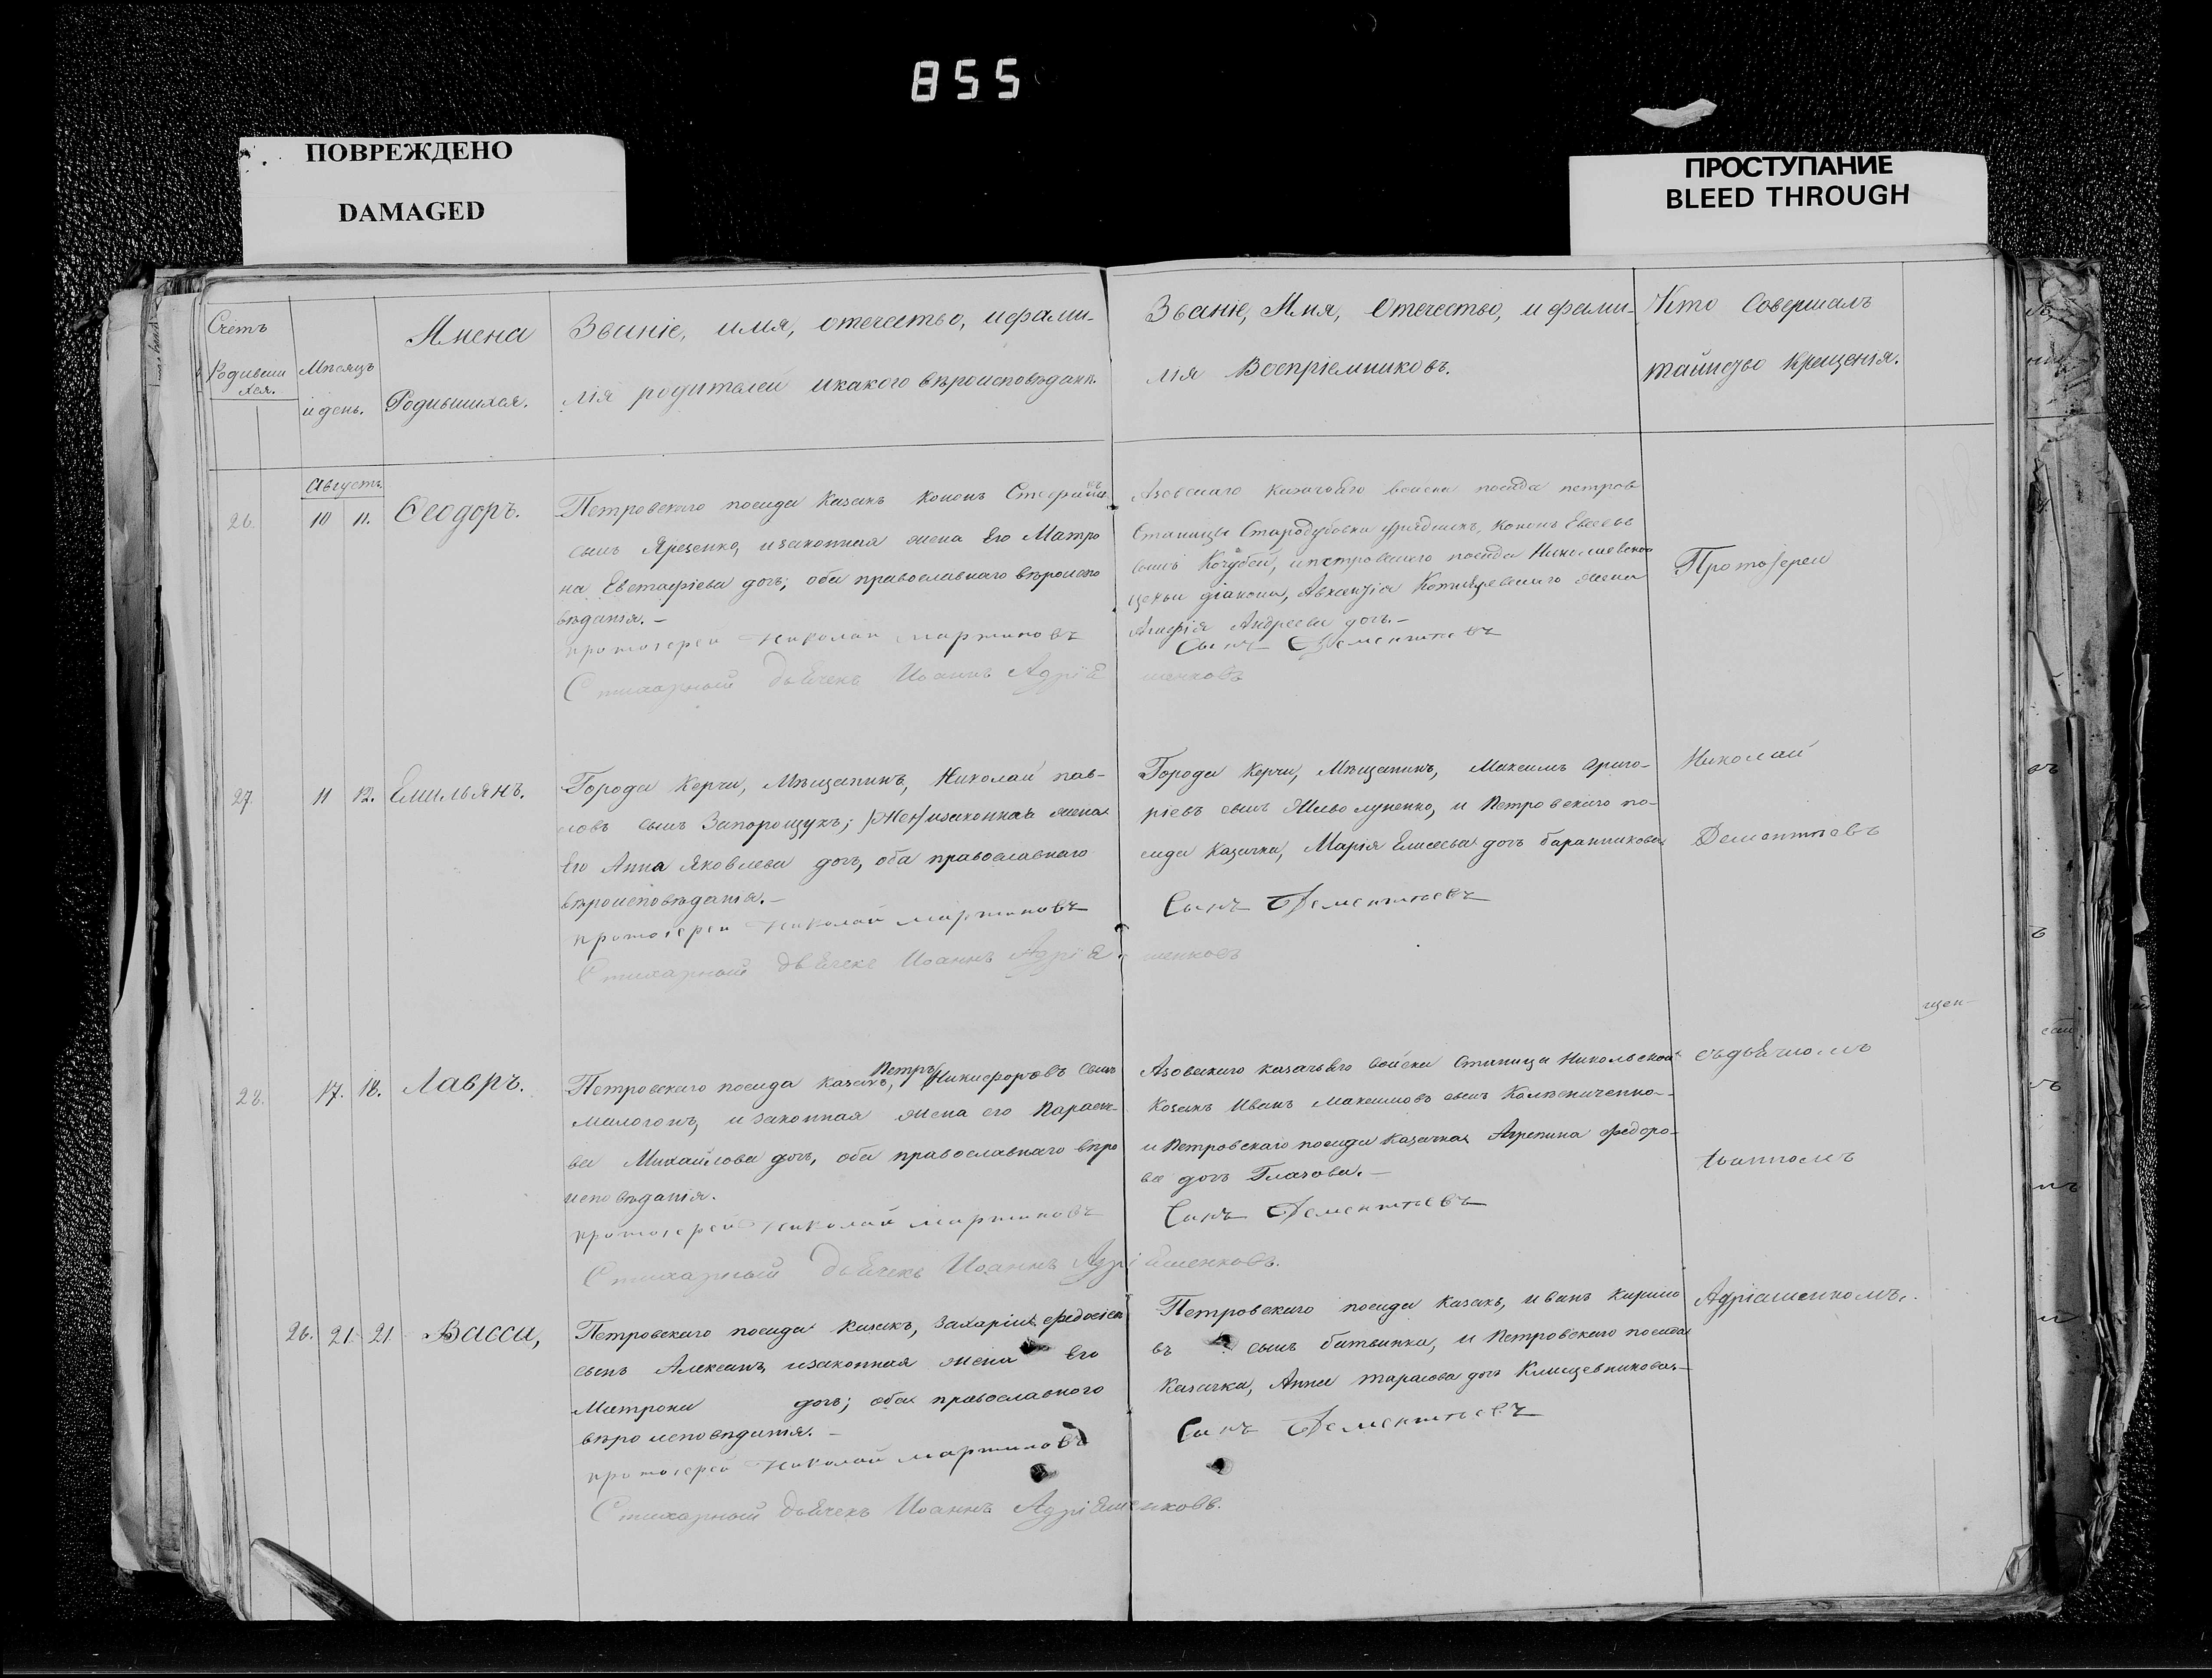 855
ПОВРЕЖДЕНО
DAMAGED
ПРОСТУПАНИЕ
BLEED THROUGH
Счетъ
Родивши
хся.
Мѣсяцъ
и день.
Имена
Родившихся.
Званіе, имя, отечество, ифами-
лія родителей икакого вѣроисповѣдані.
Званіе, Имя, Отечество, и фами-
лія Воспріемниковъ.
Кто Совершалъ
таинство Крещенія.
Августъ
26. 10 11. Ѳеодоръ.
Петровскаго посада Казакъ Кононъ
сынъ Яресенко, изаконная жена Его Матро
на Евстафіева дочь; оба православнаго вѣроиспо
вѣданія.-
протоіерей Николай Мартиновъ
Стихарный дьячекъ Иоаннъ Адрія
Азовскаго казачьяго войска посада петров
Станицы Стародубовки урядникъ, Кононъ Евсеевъ
сынъ Кочубей, ипетровскаго посада Николаевской
церкви діакона, Авксентія жена
Агафія Андреева дочь.-
Сынъ Дементьевъ
шенковъ
Протоіереи
27 11 12. Емильянъ.
Города Керчи, Мѣщанинъ, Николай пав-
ловъ сынъ Запорощукъ; изаконная жена
Его Анна Яковлева дочь, оба православнаго
вѣроисповѣданія.-
протоіерей Николай Мартиновъ
Стихарный дьячекъ Иоаннъ Адрія
Города Керчи, Мѣщанинъ, Максимъ Григо-
ріевъ сынъ и Петровскаго по-
сада казачка, Марія Елисеева дочь баранникова
Сынъ Дементьевъ
шенковъ
Николай
Дементьевъ
щен-
28. 17. 18. Лавръ.
Петръ
Петровскаго посада казакъ, Никифоровъ сынъ
Милогонъ, и законная жена его Параске-
ва Михайлова дочь, оба православнаго вѣро
исповѣданія.
протоіерей Николай Мартиновъ
Стихарный дьячекъ Иоаннъ Адріяшенковъ.
Азовскаго казачьяго войска Станицы Никольской
Козакъ Иванъ Максимовъ сынъ
и Петровскаго посада Казачка Агрепина федоро-
ва дочь Глазова.-
Сынъ Дементьевъ
съдьячкомъ
Иоанномъ
26. 21 21 Васса,
Петровскаго посада казакъ, Захарій федосіев
сынъ изаконная жена Его
Матрона дочь; оба православного
вѣроисповѣданія.-
протоіерей Николай Мартиновъ
Стихарный дьячекъ Иоаннъ Адріяшенковъ.
Петровскаго посада казакъ, иванъ Кирило
въ сынъ битвинка, и Петровскаго посада
Казачка, Анна тарасова дочь Клищевникова-
Сынъ Дементьевъ
Адріашенкомъ.